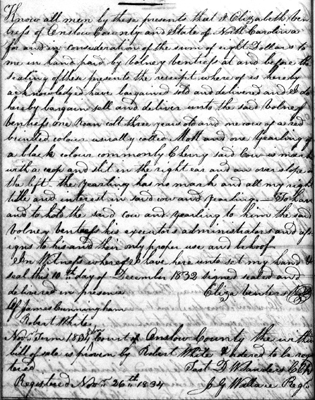 Know all men by these presents that I Elizabeth Ven
tress of Onslow County and State of North Carolina
for and in consideration of the sum of eight Dollars to
me in hand paid by Volney Ventress at and before the
sealing of these presents the receipt where of is hereby
acknowledged have bargained sold and delivered and do
hereby bargain sell and deliver unto the said Volney
Ventress one Cow call three years old and now of a red
colour usually called Moll and one Yearling of
a black colour commonly Cherry said Cow is mark
with a crop and slit in the right ear and over slope in
the left the yearling has no mark and all my right
title and interest in said cow and yearling To have
and to hold the said cow and yearling to him the said
Volney Ventress his executors administrators and ass
igns to his and their only proper use and behoof
In Witness where of I have here unto set my hand &
seal this 10th day of December 1832 signed sealed and
delivered in presence
Eliza Ventress
of James Cunningham
Robert White
Nov Term 1834 Court Onslow County the within
bill of sale is proven by Robert White & ordered to be regis
tered Test D W Sanders
Registered Nov 26th 1834 J G Wallace Regr